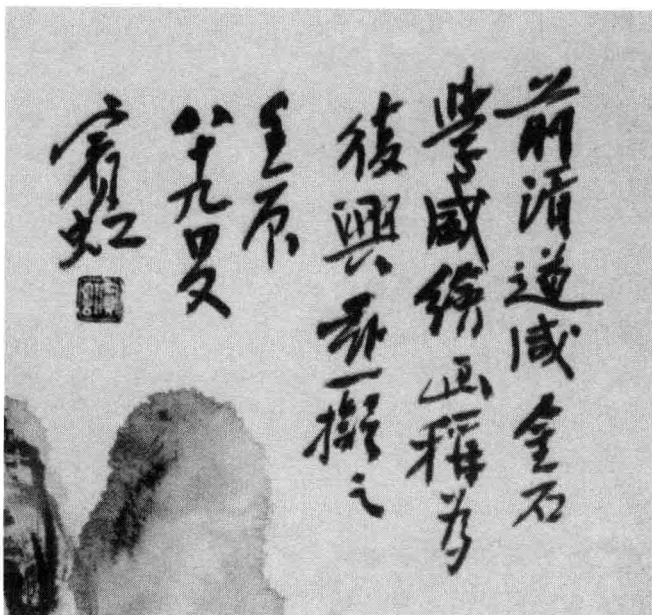 前清道咸金石
學盛繪画稱為
復興茲一擬之
壬辰
八十九叟
賓虹